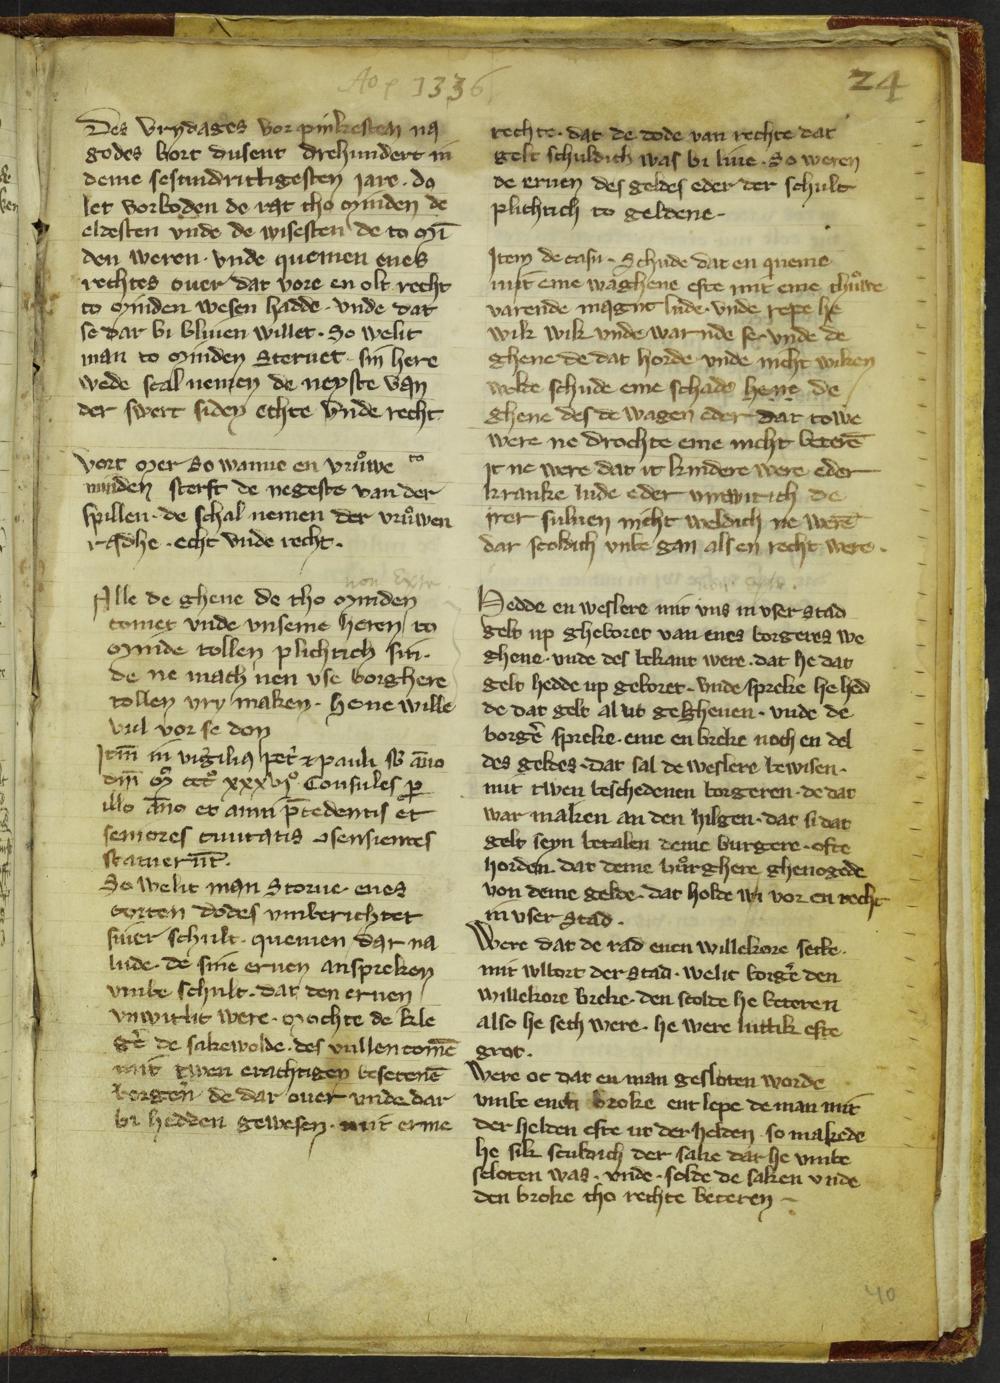 Ao 1336
24
Des vrydages vor pinkesten na
godes bort dusent drehundert in
deme sesundrittigesten jare. do
let vorboden de rat tho Minden de
eldesten vnde de wisesten de to Mī
den weren. vnde quemen enes
rechtes ouer dat vore en olt recht
to Minden wesen hadde. vnde dat
se dar bi bliuen willet. So welit
man to Minden steruet. sin here
wede scal nemen de neyste van
der swert siden echte vnde recht
Vort mer So wanne en vrůwe to
minden sterft de negeste van der
spillen. de schal nemen der vrůwen
radhe. echt vnde recht.
Alle de ghene de tho Minden
comet vnde vnseme heren to
Minde tollen plichtich sin.
de ne mach nen vse borghere
tollen vry maken. he ne wille
vul vor se don
Itm̄ in vigilia pet' & pauli sb' āno
dm̄ Mͦ cccͦ xxxvjͦ Consules p
illo āno et anni p̄cedentis et
seniores ciuitatis ɔsensientes
statuerūt.
So welit man storue. enes
corten dodes vmberichtet
siner schult. quemen dar na
lude. de sine eruen anspreken
vmbe schult. dat den eruen
vnwitlit were. Mochte de kle
ge' de sakewolde. des vullencomē
mit twen erachtigen besetenē
borgen' de dar ouer vnde dar
bi hedden gewesen. mit erme
rechte. dat de dode van rechte dat
gelt schuldich was bi liue. So weren
de eruen des geldes eder der schult
plichtich to geldene.
Item de casu. Schude dat en queme
mit eme waghene efte mit eme thůwe
varende magnt lude. vnde repe he
wik wik vnde warnde se. vnde de
ghene de dat horde vnde nicht wiken
wolde schude eme schade he ne de
ghene des de wagen eder dat towe
were ne drochte eme nicht beterē
it ne were dat it kindere were eder
kranke lude eder vnwitich de
irer suluen nicht weldich ne werē
dar scoldich vmbe gan als en recht were.
Hedde en weslere mit vns in vser stad
gelt up gheboret van enes borgeres we
ghene. vnde des bekant were. dat he dat
gelt hedde up geboret. vnde spreke he hed
de dat gelt al ut gegheuen. vnde de
borge' spreke. eme en breke noch en del
des geldes. dat sal de weslere bewisen.
mit twen beschedenen borgeren. de dat
war maken an den hilgen. dat si dat
gelt seyn betalen deme burgere. ofte
horden dat deme bůrghere ghenogede
von deme gelde. dat holde wi vor en recht
in vser stad.
Were dat de rad enen willekore sette.
mit wlbort der stad. welit borge' den
willekore breke. den scolde he beteren
also he seth were. he were luttik efte
grot.
Were oc dat en man gesloten worde
vmbe enen broke ent lepe de man mit
der helden efte ut der helden. so makede
he sik sculdich der sake dar he vmbe
sloten was. vnde. solde de saken vnde
den broke tho rechte beteren
40